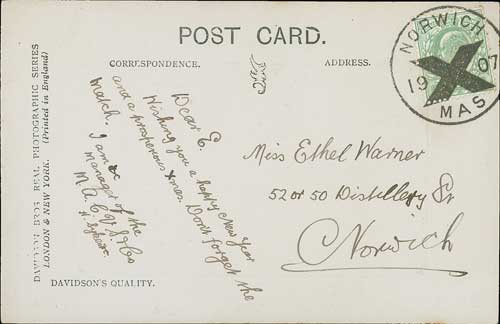 POST CARD.
CORRESPONDENCE.
ADDRESS.
NORWICH
19 X 07
MAS
Dear E.
Wishing you a happy New Year
and a prosperous Xmas. Don't forget the
match. I am
manager of the
Miss Ethel Warner
52 or 50 Distillery St
Norwich
DAVIDSON BROS. REAL PHOTOGRAPHIC SERIES
LONDON & NEW YORK. (Printed in England)
DAVIDSON'S QUALITY.